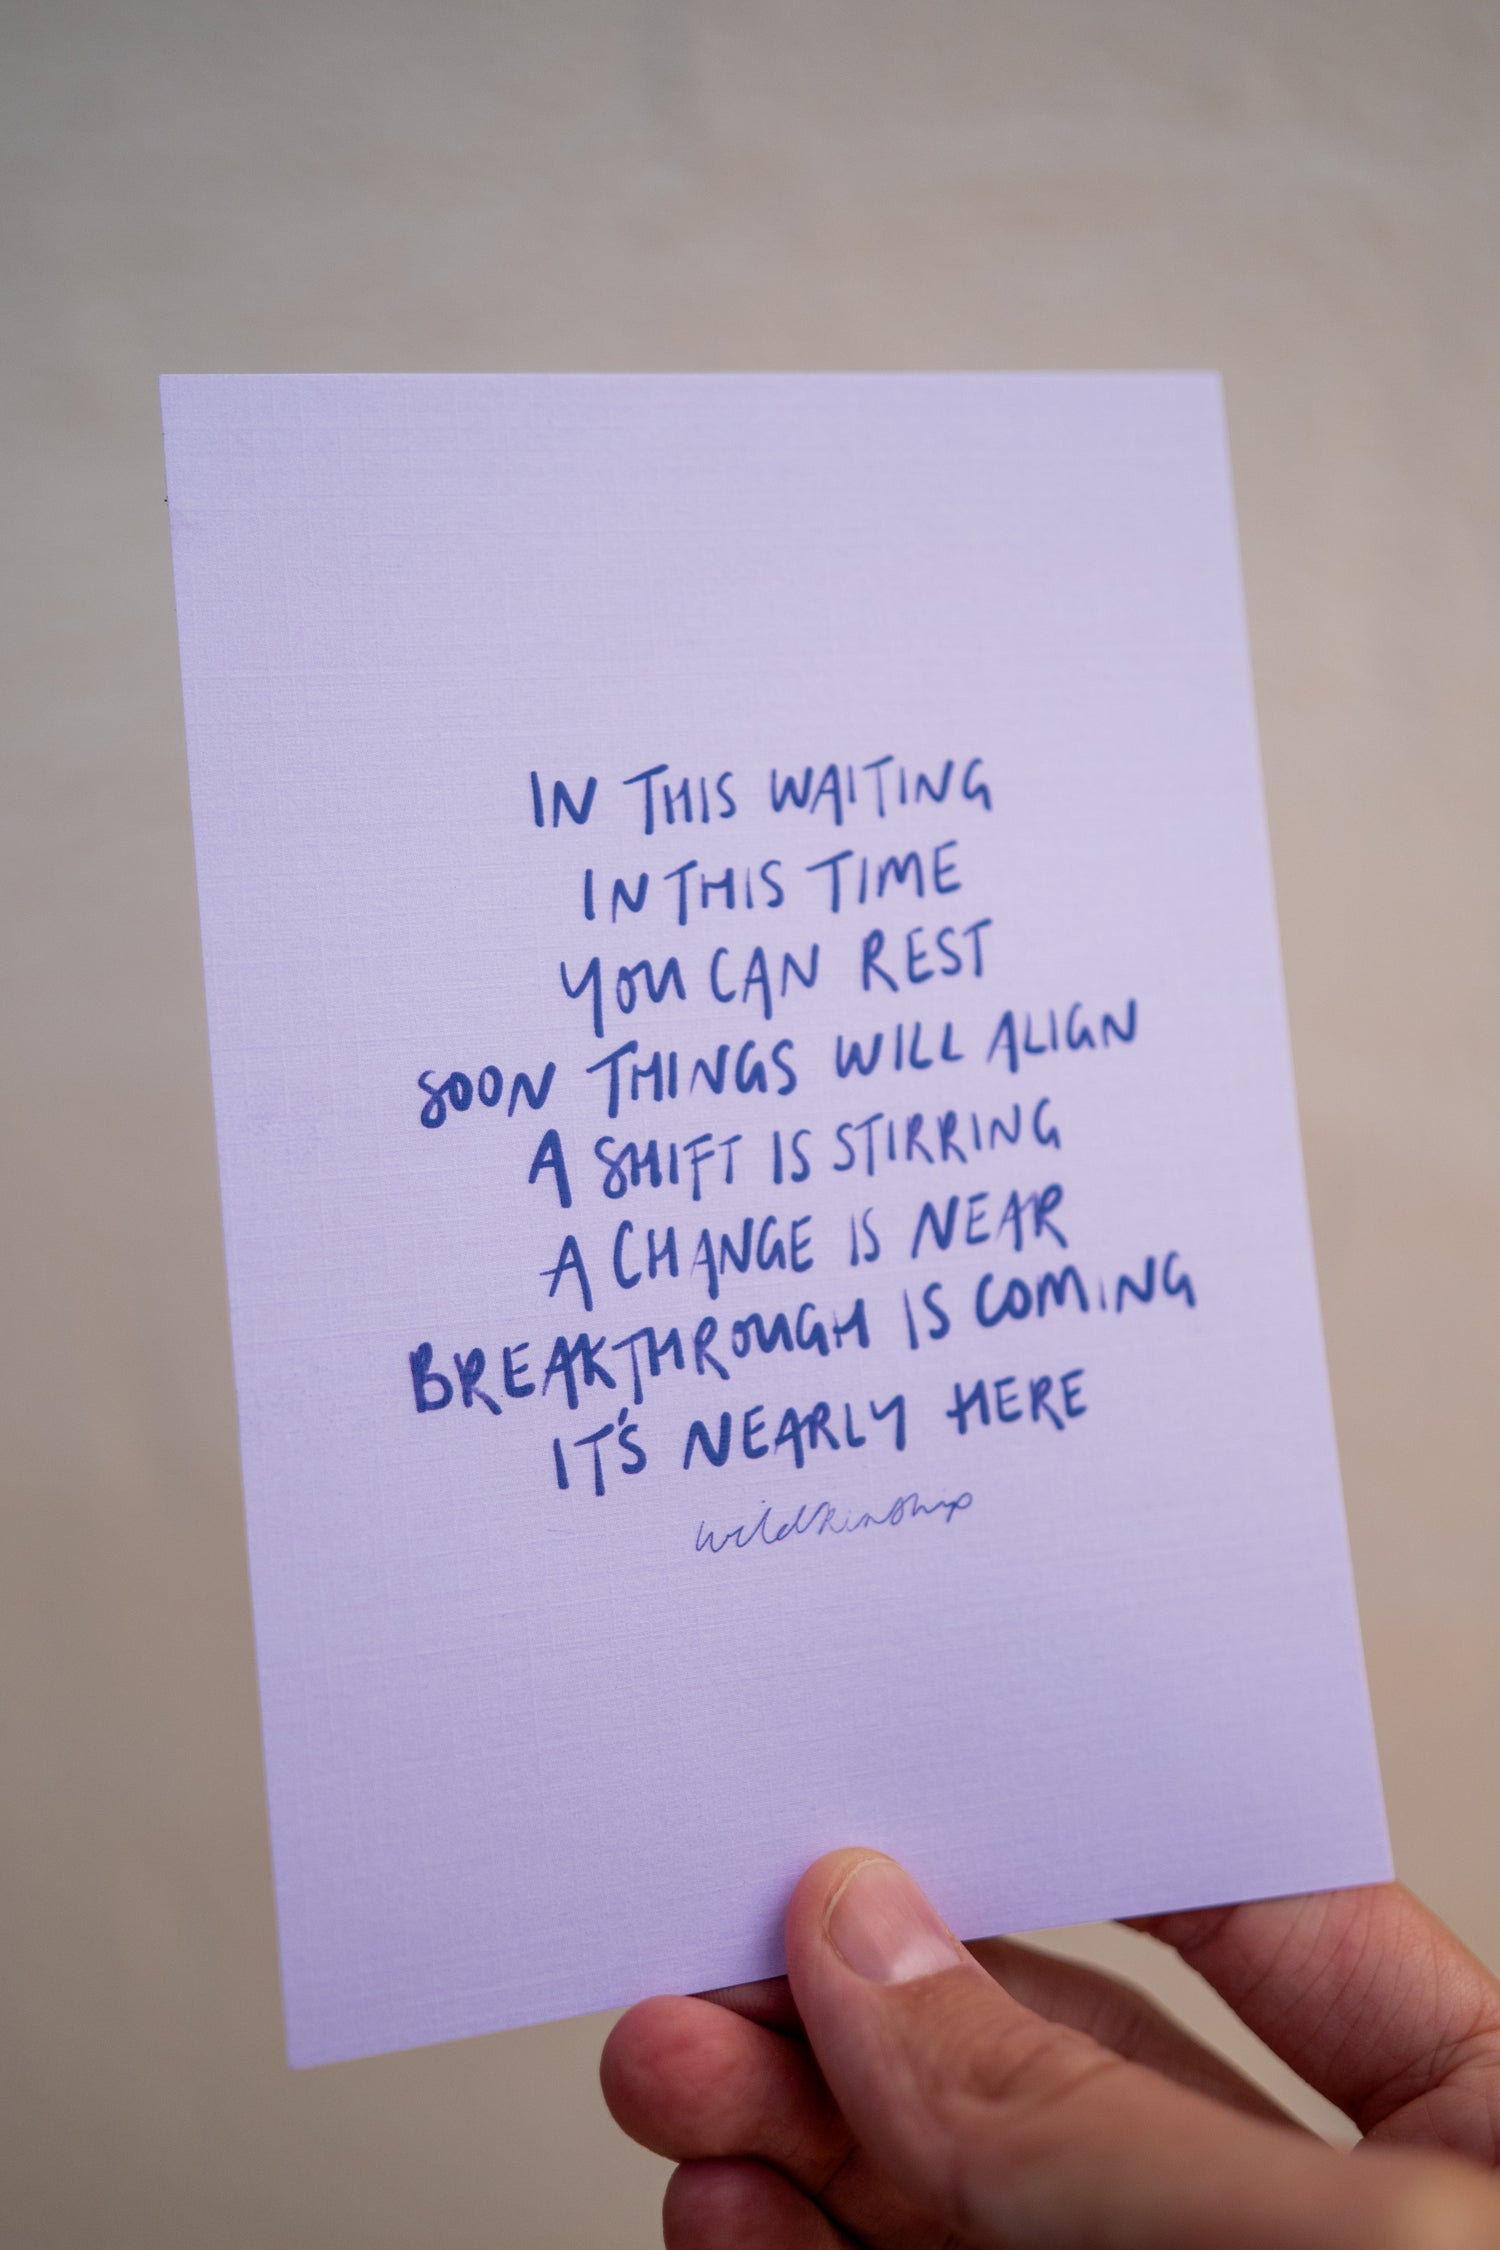 IN THIS WAITING
IN THIS TIME
YOU CAN REST
SOON THINGS WILL ALIGN
A SHIFT IS STIRRING
A CHANGE IS NEAR
BREAKTHROUGH IS COMING
IT'S NEARLY HERE
wildkinship